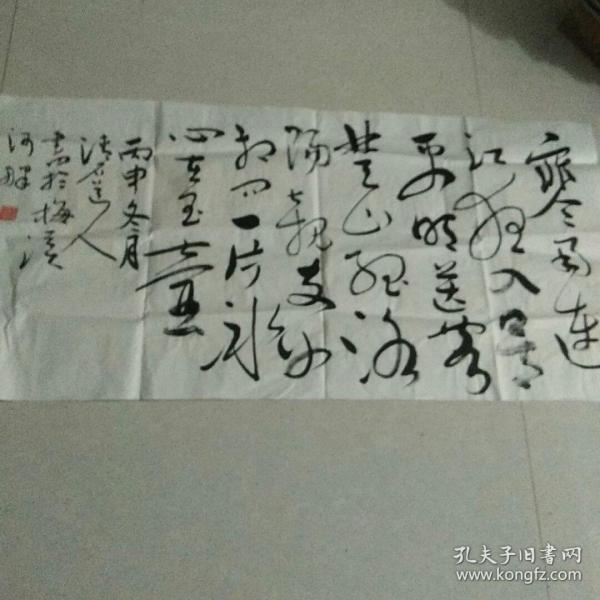 寒雨连
江夜入吴
平明送客
楚山孤洛
阳亲友
相问一片冰
心在玉壶
丙申冬月
清石道人
书于梅溪
河畔
孔夫子旧书网
www.kongfz.com